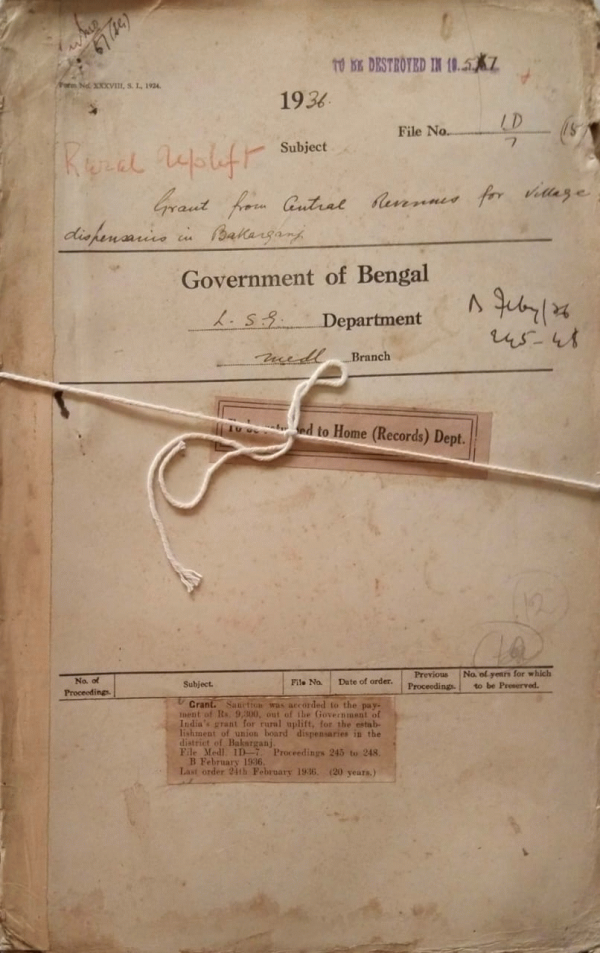 TO BE DESTROYED IN 19
Form No. XXXVIII, S. I., 1924.
1936.
File No. 1D/7
Rural Uplift
Subject
Grant from Central Revenues for village
dispensaries in Bakarganj.
Government of Bengal
L. S. G. Department
B Feby/36
245-48
Medl Branch
To be returned to Home (Records) Dept.
12
No. of Proceedings. Subject. File No. Date of order. Previous Proceedings. No. of years for which to be Preserved.
Grant. Sanction was accorded to the pay-
ment of Rs. 9,300, out of the Government of
India's grant for rural uplift, for the estab-
lishment of union board dispensaries in the
district of Bakarganj.
File Medl. 1D—7. Proceedings 245 to 248.
B February 1936.
Last order 24th February 1936. (20 years.)